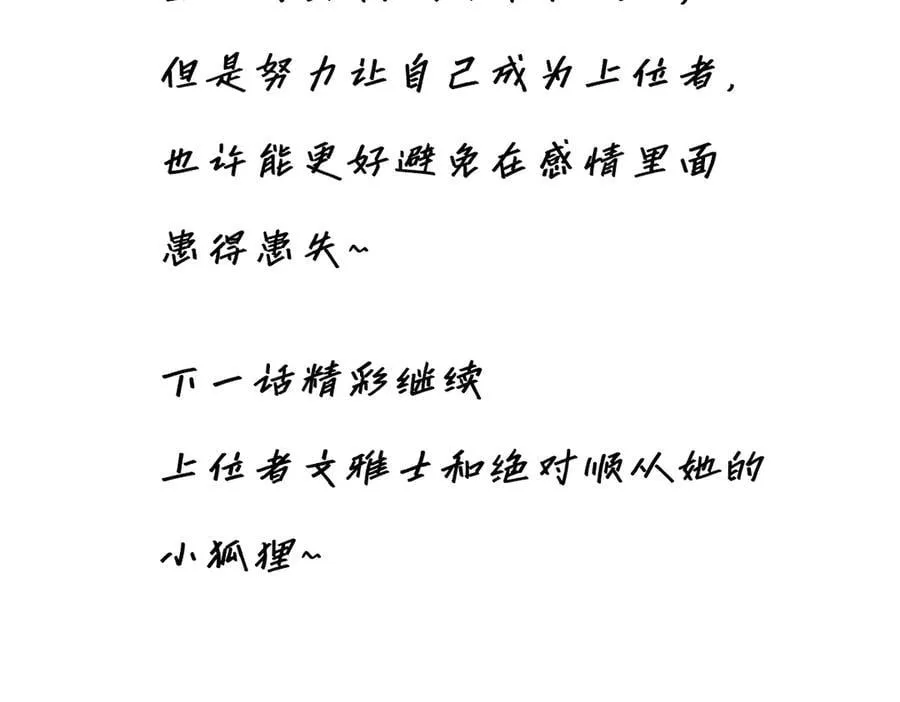 但是努力让自己成为上位者,
也许能更好避免在感情里面
患得患失~
下一话精彩继续
上位者文雅士和绝对顺从她的
小狐狸~